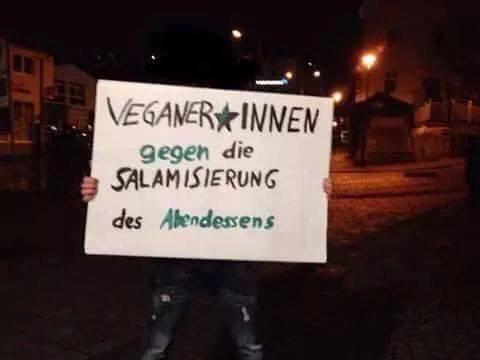 VEGANER★INNEN
gegen die
SALAMISIERUNG
des Abendessens